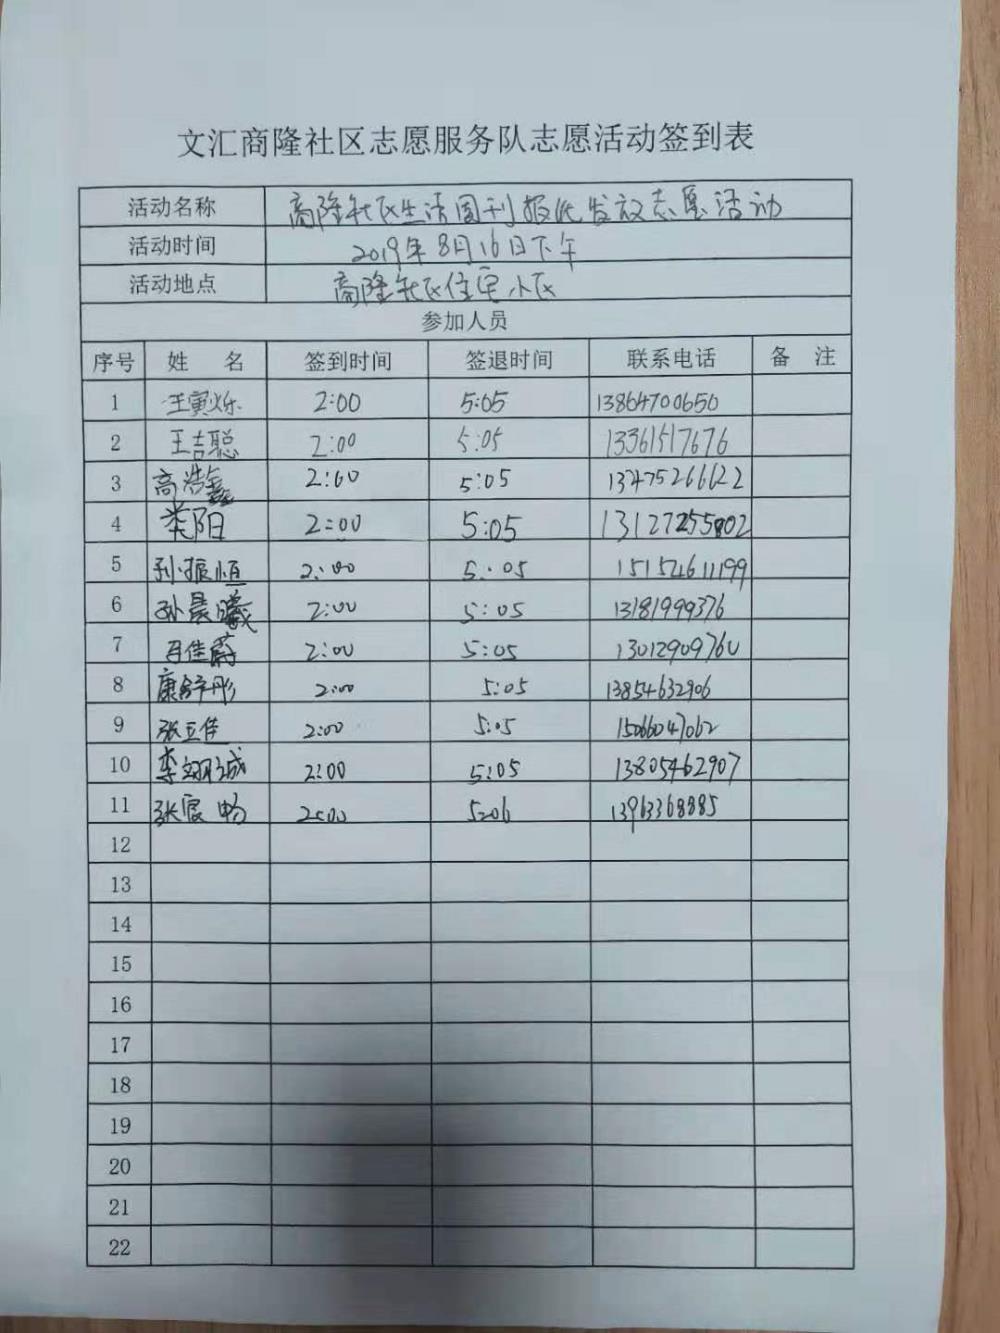 文汇商隆社区志愿服务队志愿活动签到表
活动名称 商隆社区生活周刊报纸发放志愿活动
活动时间 2019年8月16日下午
活动地点 商隆社区住宅小区
参加人员
序号 姓 名 签到时间 签退时间 联系电话 备 注
1 王寅烁 2:00 5:05 13864700650
2 王吉聪 2:00 5:05 13361517676
3 高浩鑫 2:00 5:05 13475266622
4 娄阳 2:00 5:05
5 孙振恒 2:00 5:05 15154611199
6 孙晨曦 2:00 5:05 13181999376
7 佳蔚 2:00 5:05 13012909760
8 康舒彤 2:00 5:05 13854632906
9 张立佳 2:00 5:05 15066047062
10 李翊诚 2:00 5:05 13805462907
11 张宸畅 2:00 5:06 13963368885
12
13
14
15
16
17
18
19
20
21
22